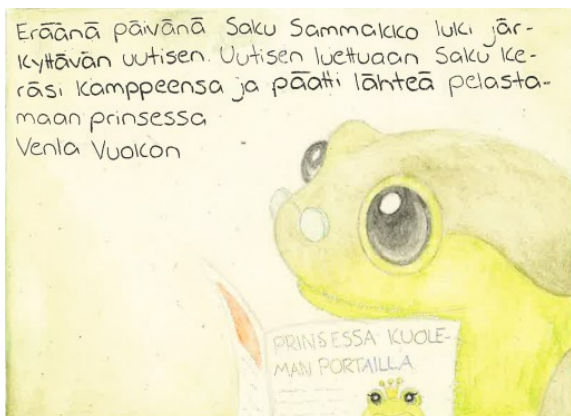 Eräänä päivänä Saku Sammakko luki jär-
kyttävän uutisen. Uutisen luettuaan Saku ke-
räsi kamppeensa ja päätti lähteä pelasta-
maan prinsessa
Venla Vuokon
PRINSESSA KUOLE-
MAN PORTAILLA